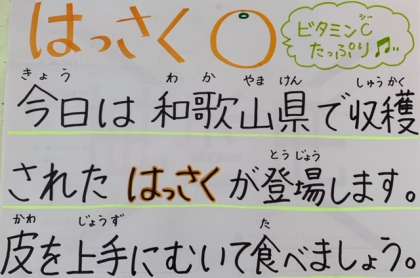 はっさく
ビタミンC
たっぷり♫
きょう わ か やま けん しゅうかく
今日は和歌山県で収穫
とうじょう
されたはっさくが登場します。
かわ じょうず た
皮を上手にむいて食べましょう。